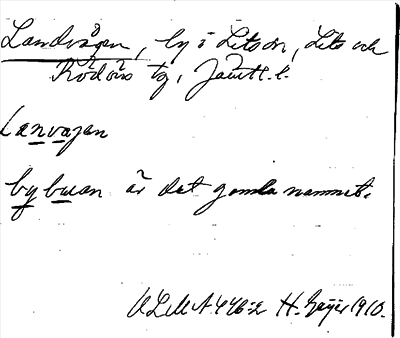 Landvågen, by i Litsdn, Lits och
Rödöns tg, Jämtl. l.
Lænvagen
bybuan är det gamla namnet.
ULMA 446:2 H. Geijer 1910.